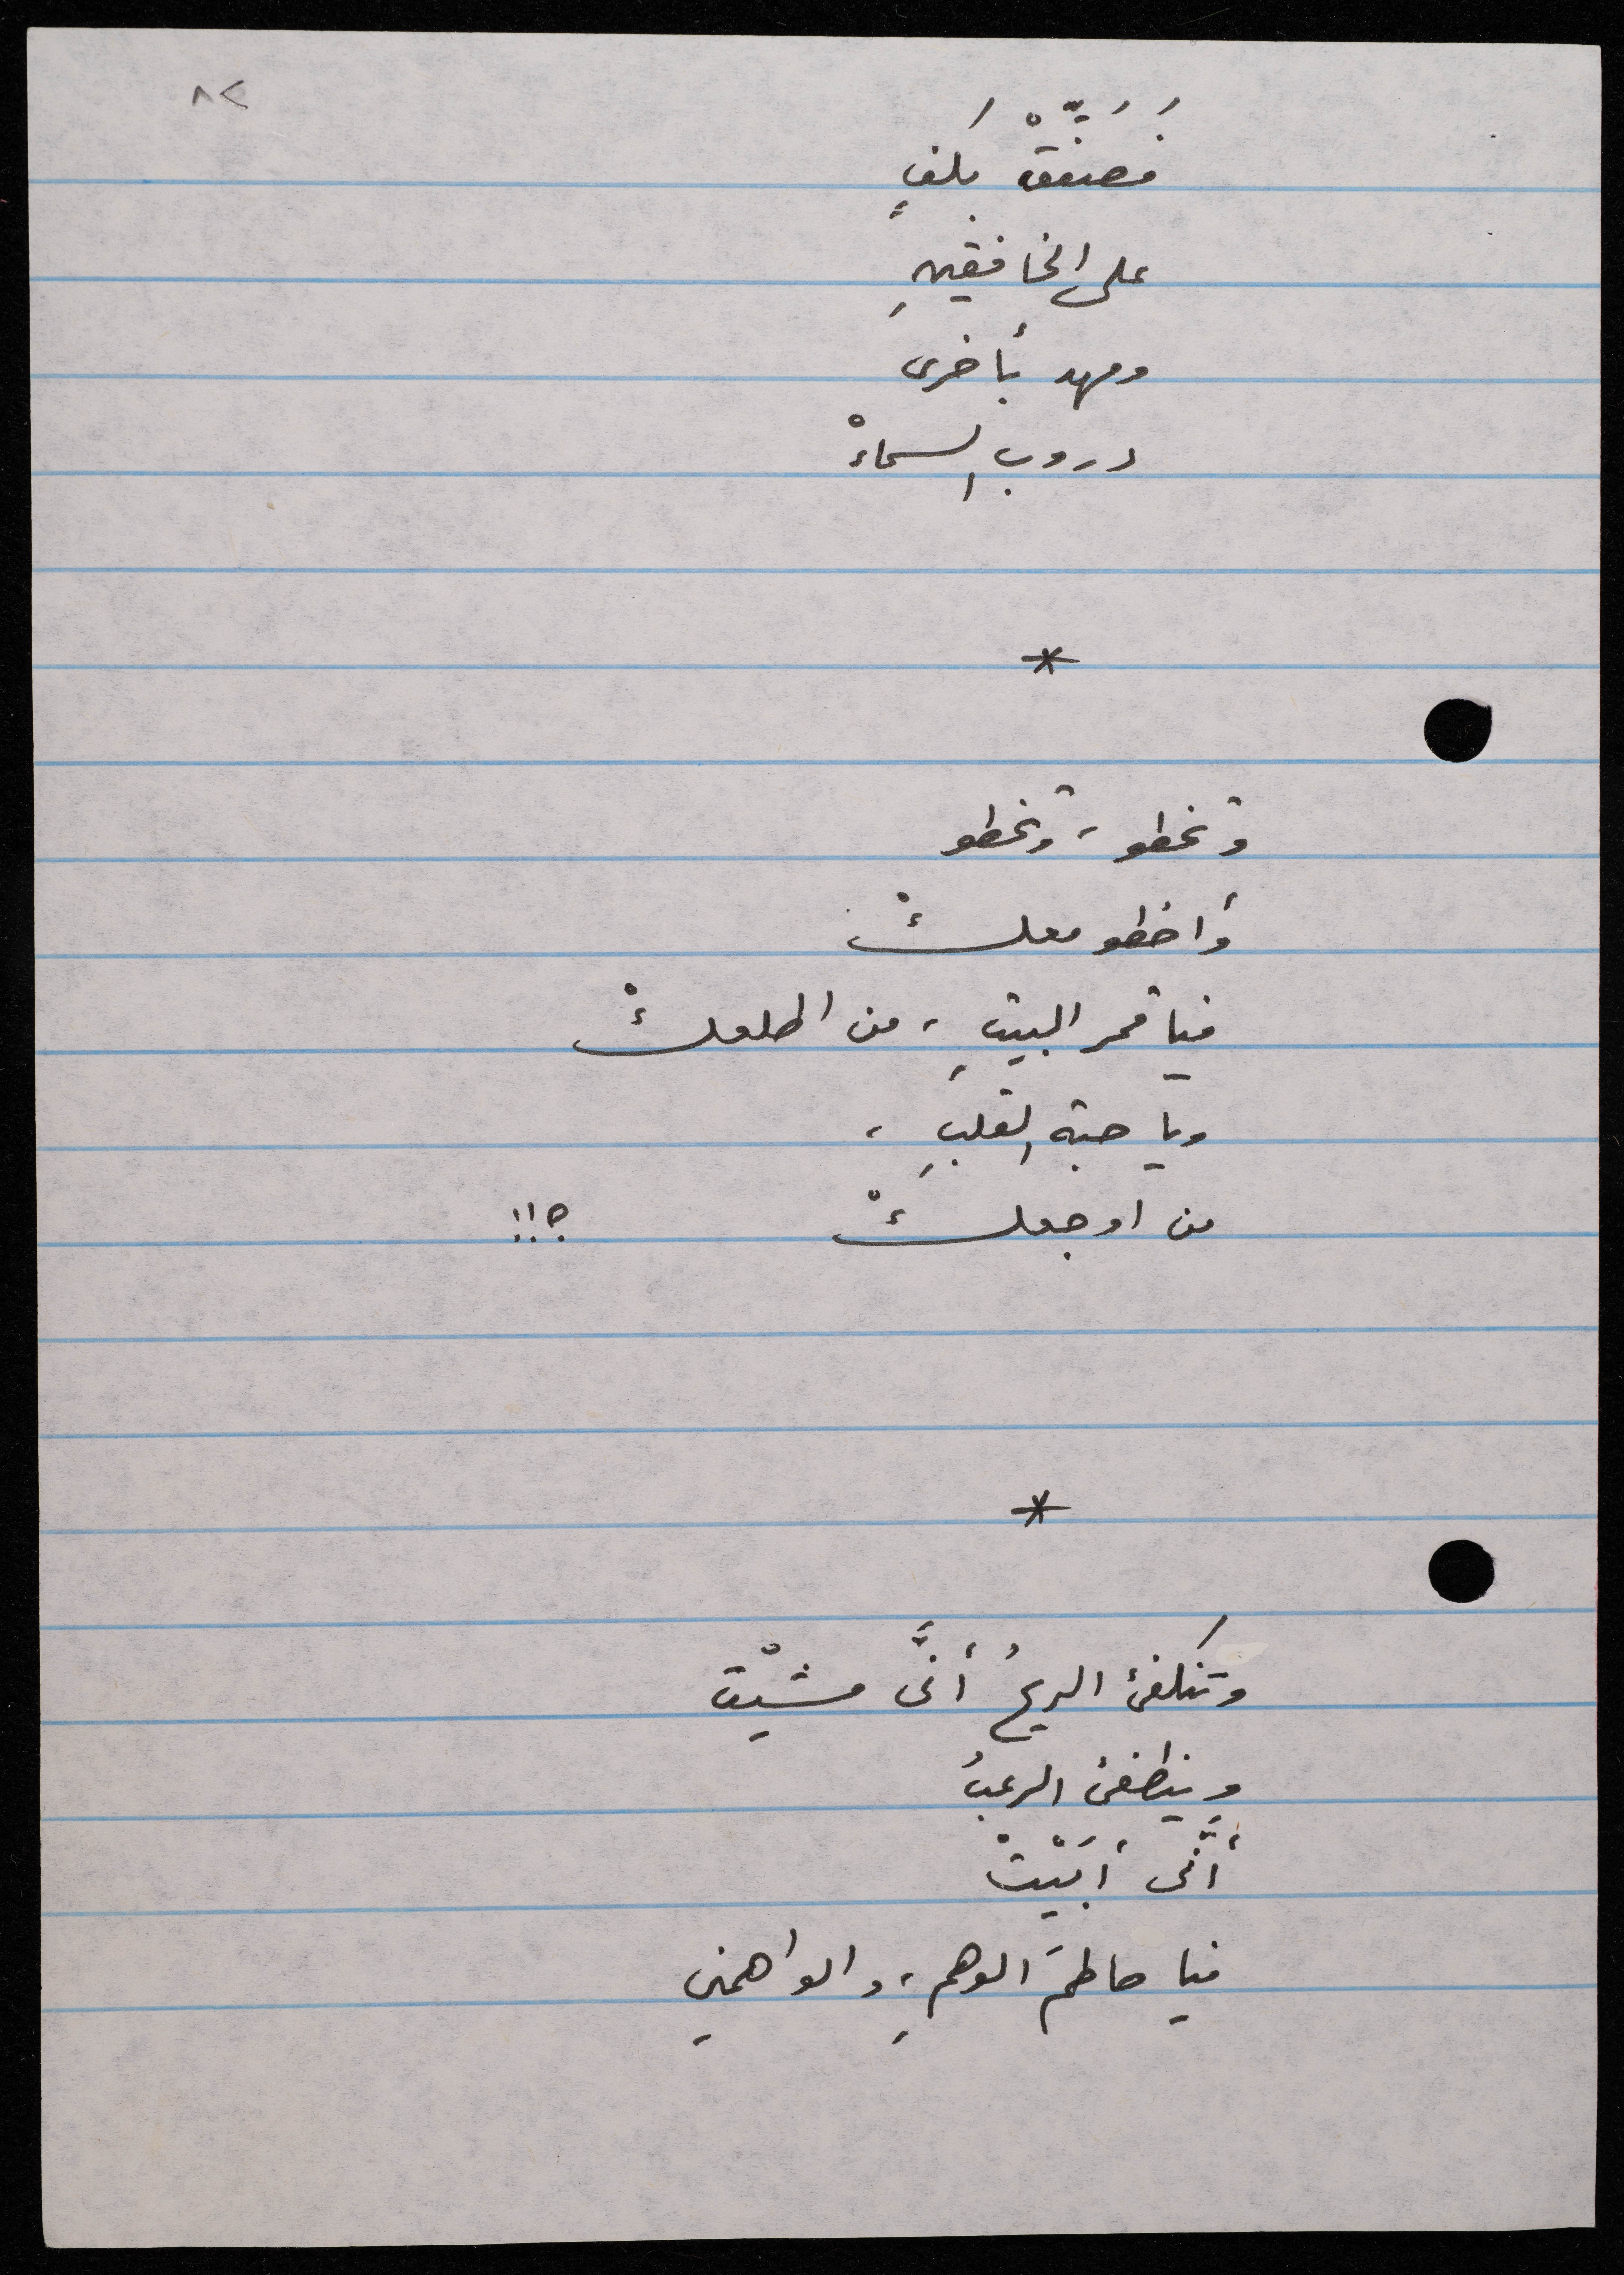 ٨٢
فَصَفِّقْ بكفٍ
على الخافقينِ
ومهد بأخرى
دروب السماءْ
*
وتخطو، وتخطو
وأخطو معكْ
فيا قمر البيتِ، من اطلعكْ
ويا حبة القلبِ،
من اوجعكْ ؟!!
*
وتنكفئ الريحُ أنَّى مشيْت
وينطفئ الرعبُ
أنَّى أبَيْتْ
فيا حاطمَ الوهمِ، والواهمين